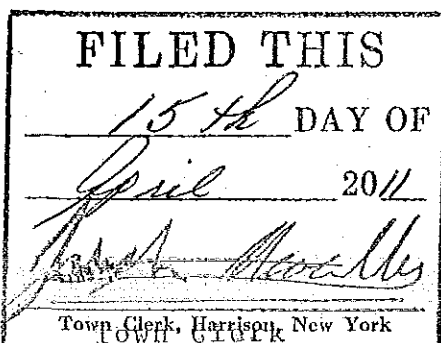 FILED THIS
15th DAY OF
April 2011
Town Clerk, Harrison, New York
Town Clerk